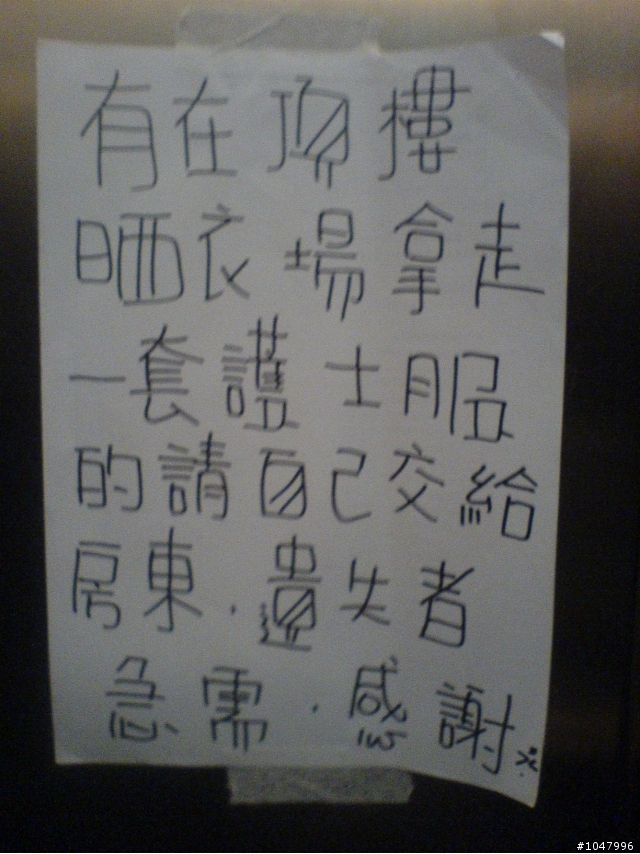 有在頂樓
晒衣場拿走
一套護士服
的請自己交給
房東.遺失者
急需.感謝
#1047996